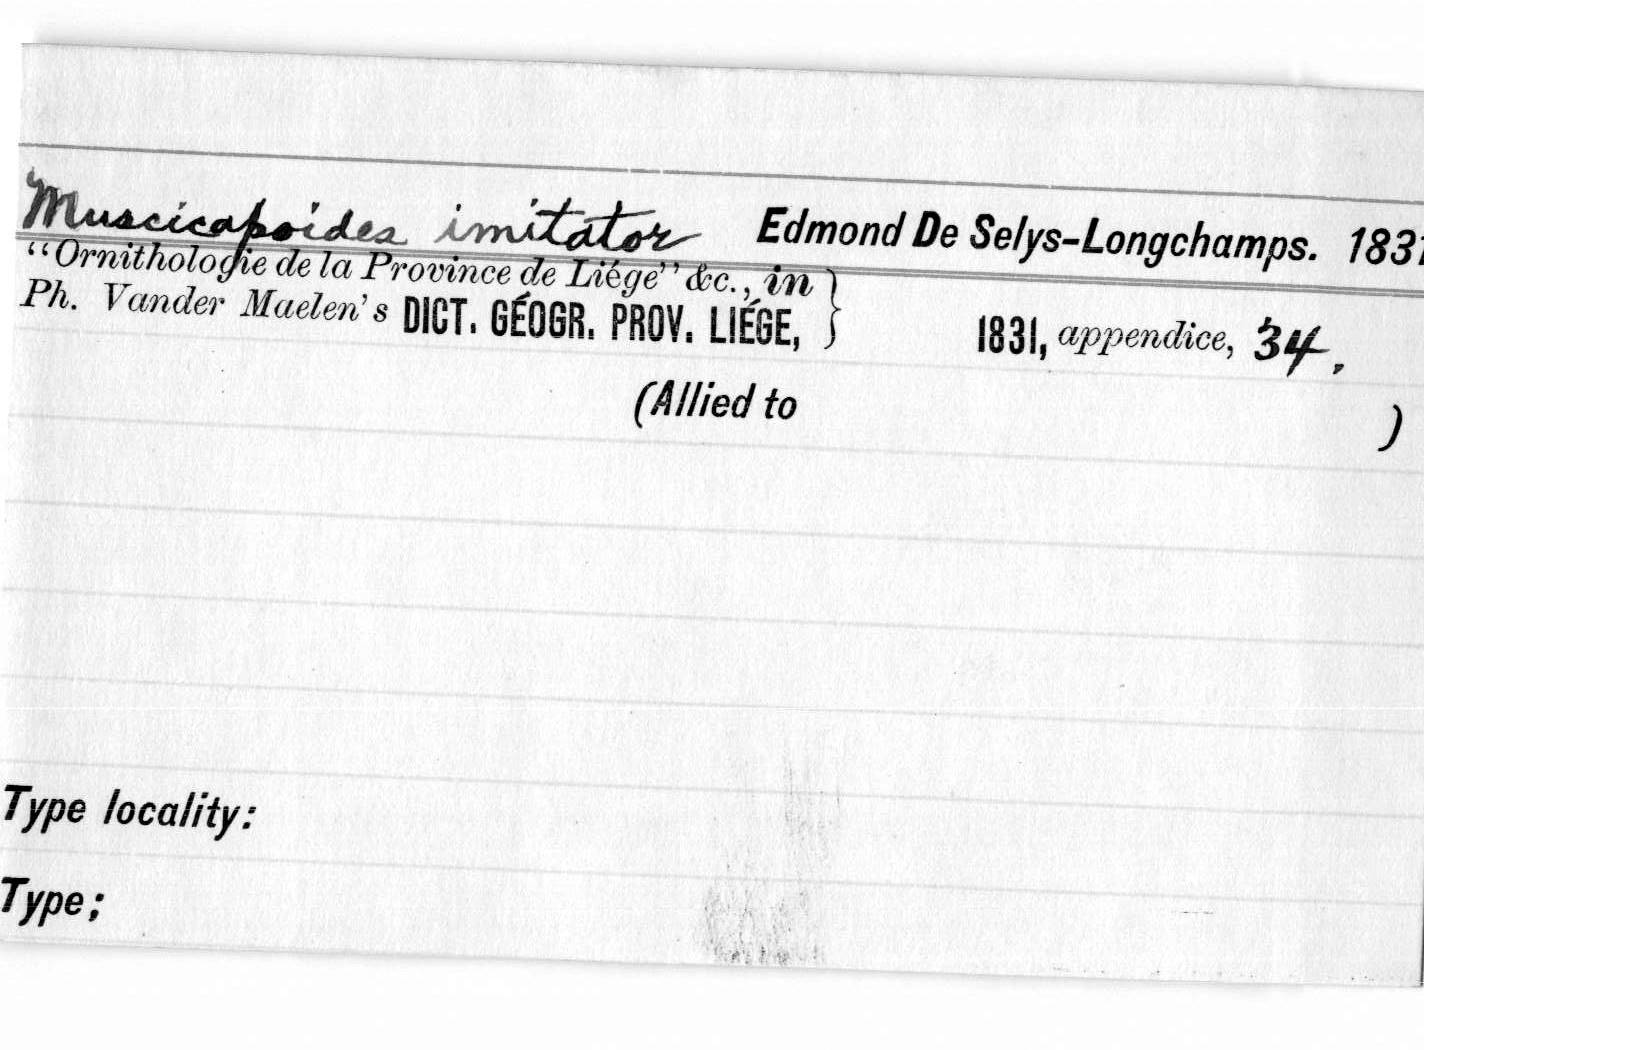 Muscicapoides imitator Edmond De Selys-Longchamps. 1831
“Ornithologie de la Province de Liége” &c., in }
Ph. Vander Maelen's DICT. GÉOGR. PROV. LIÉGE, 1831, appendice, 34.
(Allied to )
Type locality:
Type;